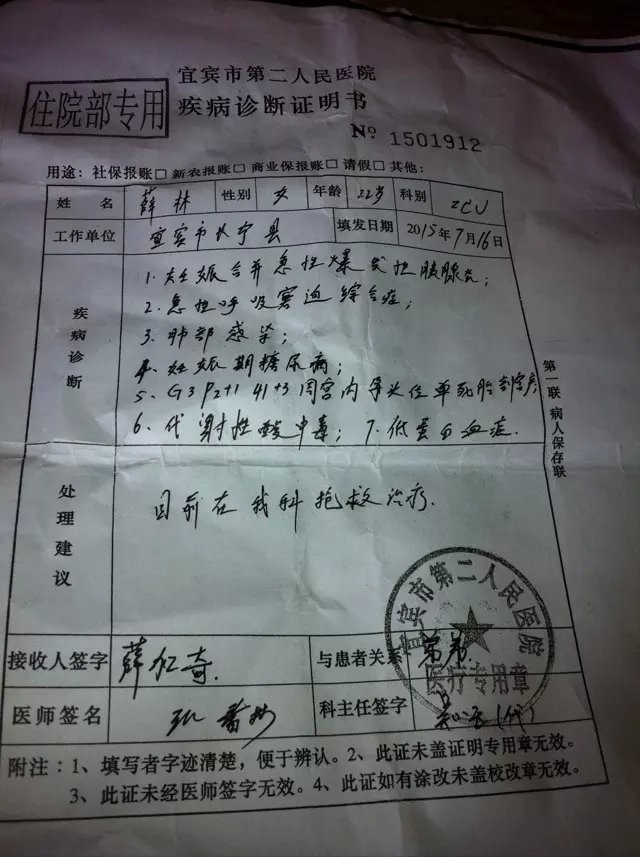 宜宾市第二人民医院
住院部专用
疾病诊断证明书
№ 1501912
用途：社保报账□ 新农报账□ 商业保报账□ 请假□ 其他：
姓 名 薛林 性别 女 年龄 22岁 科别 ICU
工作单位 宜宾市长宁县 填发日期 2015年7月16日
疾病诊断
1. 妊娠合并急性爆发性胰腺炎；
2. 急性呼吸窘迫综合症；
3. 肺部感染；
4. 妊娠期糖尿病；
5. G3P2+1 41+3周宫内孕头位单死胎剖宫产
6. 代谢性酸中毒；7. 低蛋白血症.
第一联 病人保存联
处理建议
目前在我科抢救治疗.
接收人签字 薛红奇 与患者关系
医师签名 科主任签字
宜宾市第二人民医院
医疗专用章
附注：1、填写者字迹清楚，便于辨认。2、此证未盖证明专用章无效。
3、此证未经医师签字无效。4、此证如有涂改未盖校改章无效。